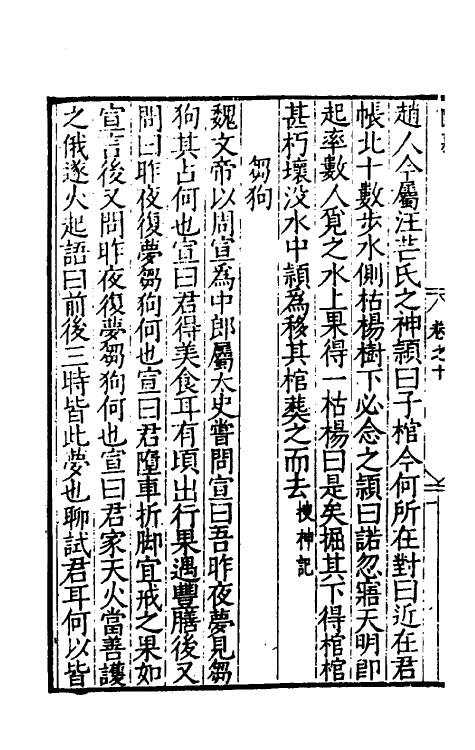 趙人今屬汪芒氏之神頴曰子棺今何所在對曰近在君
帳北十數步水側枯楊樹下必念之頴曰諾忽寤天明即
起率數人覓之水上果得一枯楊曰是矣掘其下得棺棺
甚朽壞沒水中頴為移其棺葬之而去搜神記
芻狗
魏文帝以周宣為中郎屬太史嘗問宣曰吾昨夜夢見芻
狗其占何也宣曰君得美食耳有頃出行果遇豐膳後又
問曰昨夜復夢芻狗何也宣曰君墮車折脚宜戒之果如
宣言後又問昨夜復夢芻狗何也宣曰君家天火當善護
之俄遂火起語曰前後三時皆此夢也聊試君耳何以皆
卷之十